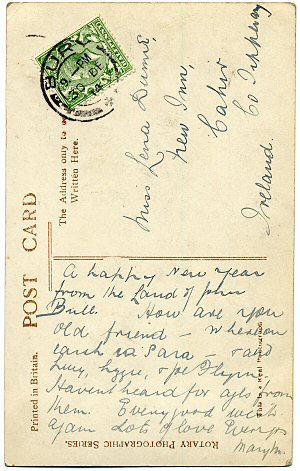 POST CARD
Printed in Britain.
The Address only to be
Written Here.
BURY
9 PM
30 DE
Miss Lena Dunne,
New Inn,
Cahir
Co Tipperary
Ireland.
A happy New Year
from the Land of John
Bull. How are you
Old friend - Where on
earth is Para - and
Lucy, Lizzie, & Joe Flynn
Havent heard for ages from
them. Every good wish
again Lots of love
Mary
This is a Real Photograph
ROTARY PHOTOGRAPHIC SERIES.